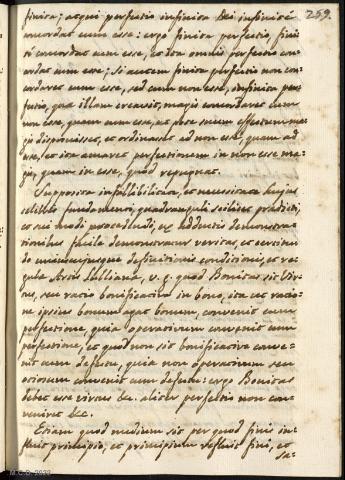 259.
finita; atqui perfectio infinita Dei infinitè
concordat cum esse: ergo finita perfectio, fini-
tè concordat cum esse, et ita omnis perfectio con-
cordat cum esse; si autem finita perfectio non con-
cordaret cum esse, sed cum non esse, infinita per-
fectio, quæ illam creavit, magis concordaret cum
non esse, quam cum esse, ac posse suum effectum ma-
gis disposuisset, et ordinasset ad non esse, quam ad
esse, et ita amaret perfectionem in non esse ma-
gis, quam in esse, quod repugnat.
Supposita infallibilitate, et necessitate hujus
solidi fundamenti, quadranguli scilicet prædicti,
et sui modi procedendi, ex adductis demonstra-
tionibus facile demonstratur veritas, et certitu-
do uniuscujusque definitionis conditionis, et re-
gulæ Artis Lullianæ, v. g. quod Bonitas sit Vir-
tus, seu ratio bonificativa in bono, ita ut ratio-
ne ipsius bonum agat bonum, convenit cum
perfectione, quia operativum convenit cum
perfectione, et quod non sit bonificativa conve-
nit cum defectu, quia non operativum seu
otiosum convenit cum defectu: ergo Bonitas
debet esse virtus &c. aliter perfectio non con-
veniret &c.
Etiam quod medium sit per quod finis in-
fluit principio, et principium refluit fini, et
M.C.D. 2022